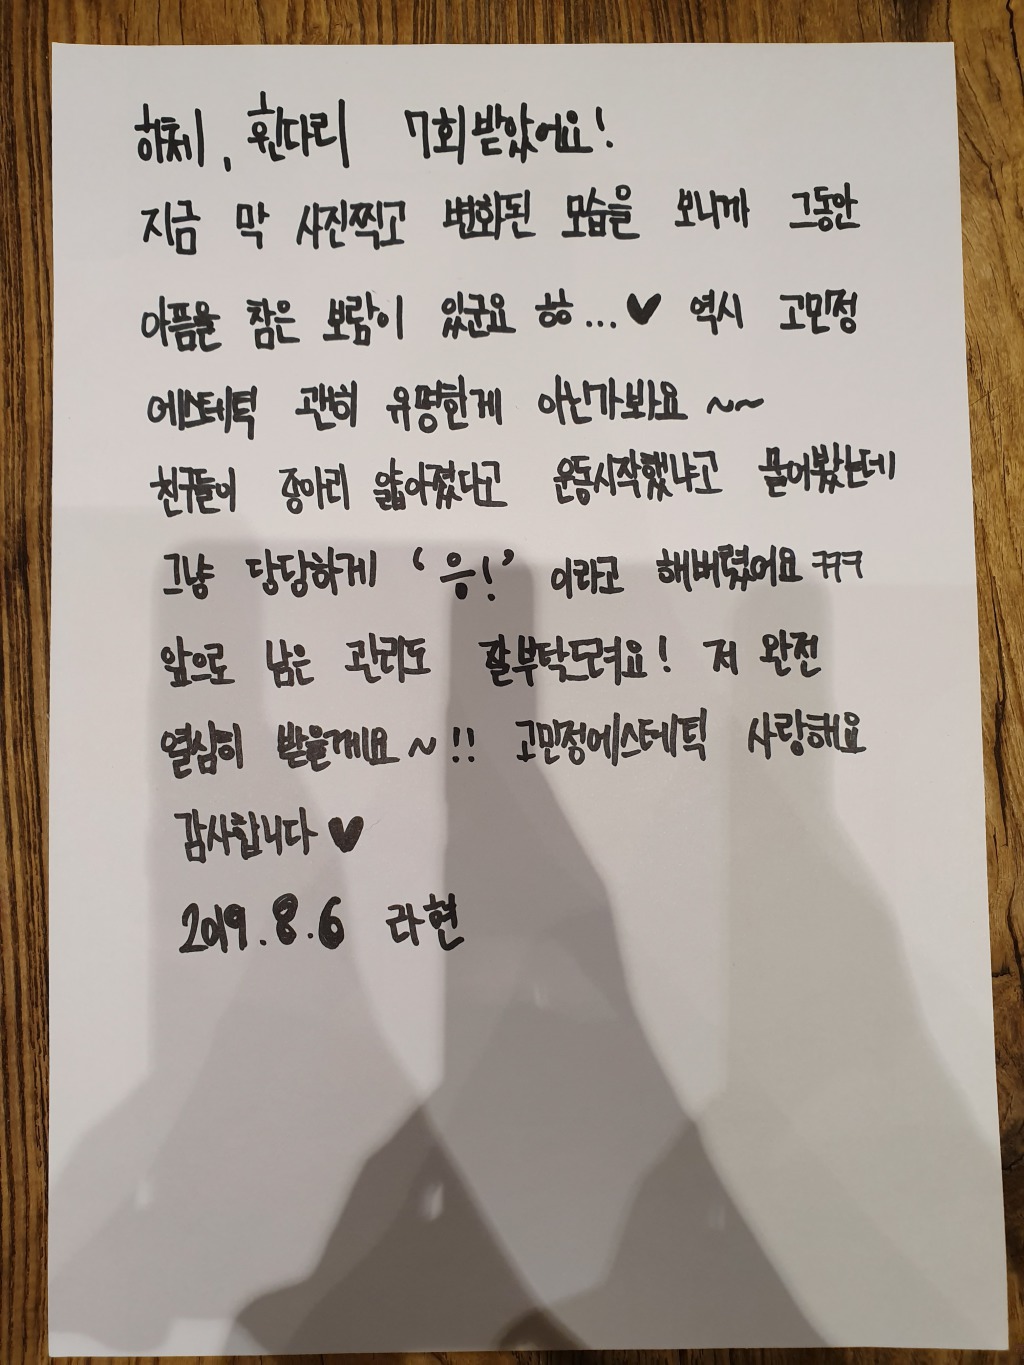 하체, 휜다리 7회받았어요!
지금 막 사진찍고 변화된 모습을 보니까 그동안
아픔을 참은 보람이 있군요 ㅎㅎ...♥ 역시 고민정
에스테틱 괜히 유명한게 아닌가봐요 ~~
친구들이 종아리 얇아졌다고 운동시작했냐고 물어봤는데
그냥 당당하게 '응!' 이라고 해버렸어요 ㅋㅋㅋ
앞으로 남은 관리도 잘부탁드려요! 저 완전
열심히 받을게요~!! 고민정에스테틱 사랑해요
감사합니다♥
2019.8.6 라현